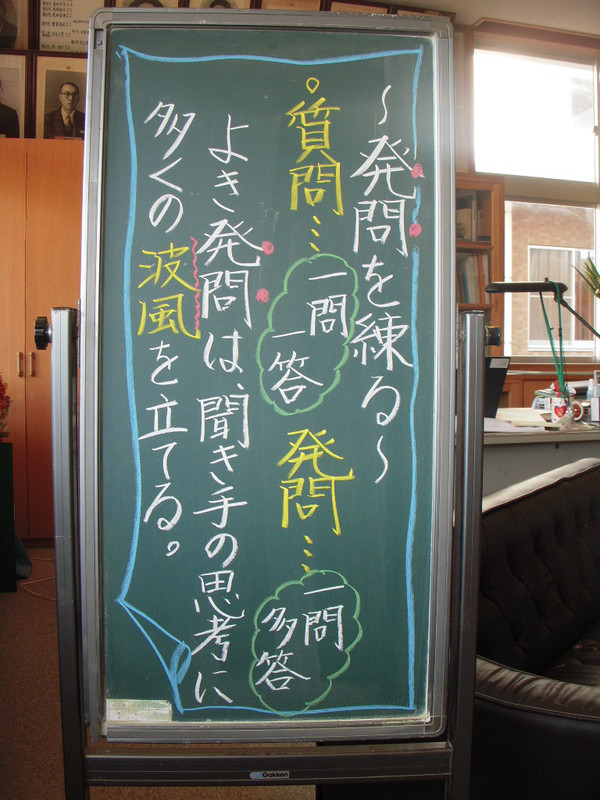 ~発問を練る~
○質問…一問一答 発問…一問多答
よき発問は、聞き手の思考に
多くの波風を立てる。
Gakken